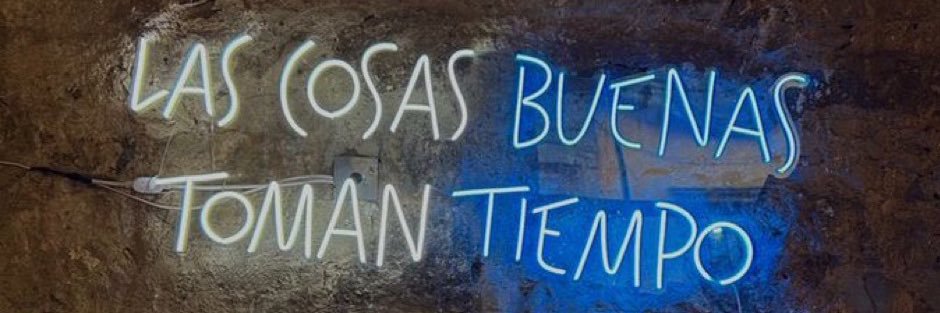 LAS COSAS BUENAS
TOMAN TIEMPO